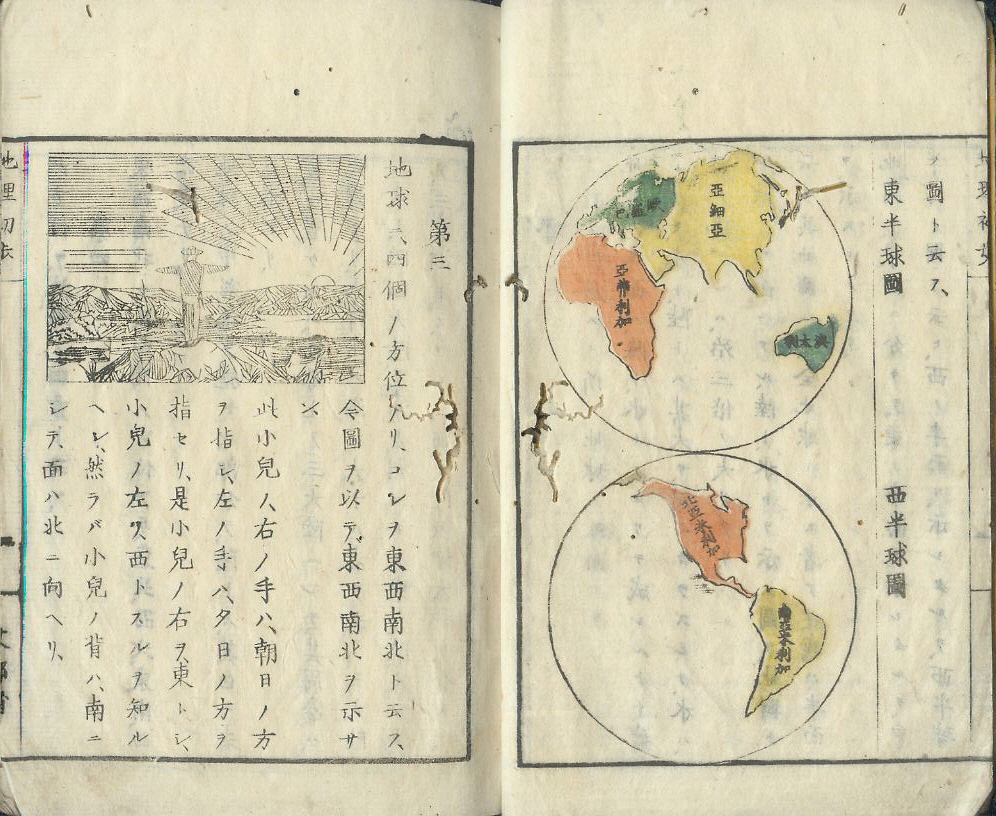 圖ト云フ、
東半球圖
西半球圖
亞細亞
歐羅巴
亞弗利加
澳太利
北亞米利加
南亞米利加
第三
地球ニ、四個ノ方位アリ、コレヲ東西南北ト云フ、
今圖ヲ以テ、東西南北ヲ示サ
ン、
此小兒ノ、右ノ手ハ、朝日ノ方
ヲ指シ、左ノ手ハ、夕日ノ方ヲ
指セリ、是小兒ノ右ヲ、東トシ、
小兒ノ左リヲ、西トスルヲ知ル
ヘシ、然ラバ小兒ノ背ハ、南ニ
シテ、面ハ、北ニ向ヘリ、
地理初歩
文部省